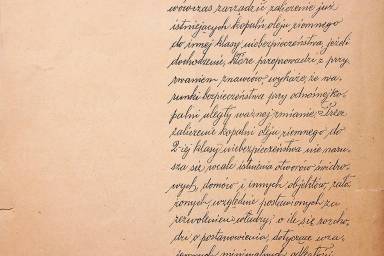 wówczas zarządzić zaliczenie już
istniejących kopalń oleju ziemnego
do innej klasy niebezpieczeństwa, jeżeli
dochodzenie, które przeprowadzi z przy
zwaniem znawców wykaże, że wa-
runki bezpieczeństwa przy odnośnej ko-
palni uległy ważnej zmianie. Przez
zaliczenie kopalni oleju ziemnego do
2-iej klasy niebezpieczeństwa nie naru-
sza się wcale istnienia otworów świdro-
wych, domów i innych objektów, zało-
żonych, względnie postawionych za
zezwoleniem władzy; o ile się rozcho-
dzi o postanowienia, dotyczące wza-
jemnych minimalnych odległości